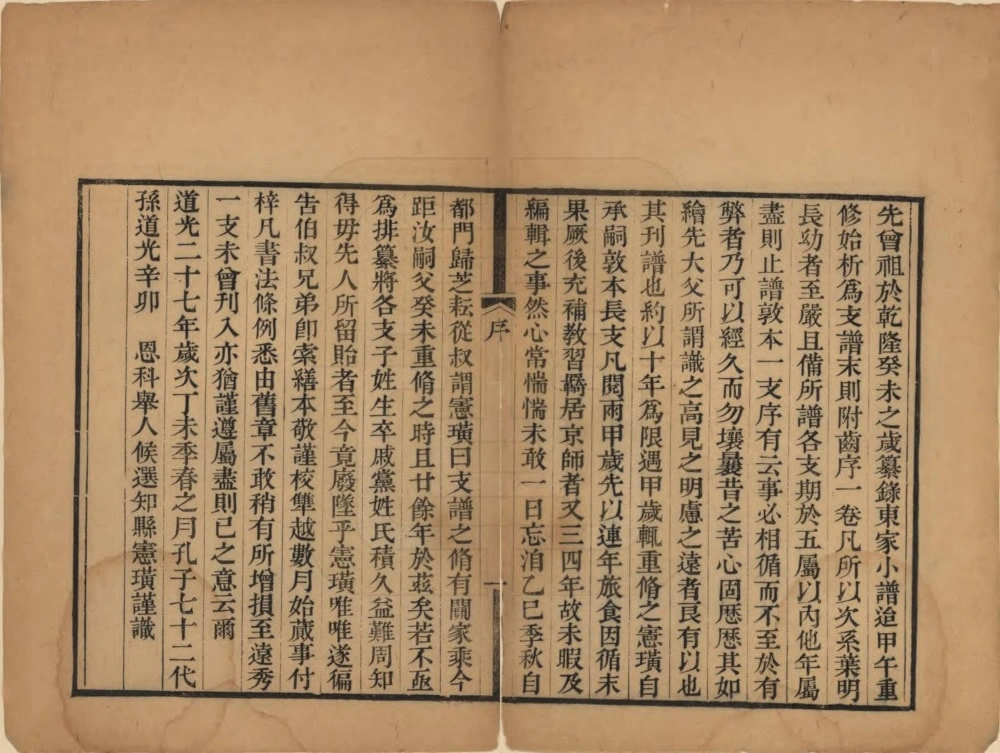 先曾祖於乾隆癸未之歲纂錄東家小譜迨甲午重
修始析爲支譜末則附齒序一卷凡所以次系葉明
長幼者至嚴且備所譜各支期於五屬以內他年屬
盡則止譜敦本一支序有云事必相循而不至於有
弊者乃可以經久而勿壞曩昔之苦心固歷歷其如
繪先大父所謂識之高見之明慮之遠者良有以也
其刊譜也約以十年爲限遇甲歲輒重脩之憲璜自
承嗣敦本長支凡閱兩甲歲先以連年旅食因循未
果厥後充補教習僑居京師者又三四年故未暇及
編輯之事然心常惴惴未敢一日忘洎乙巳季秋自
序
一
都門歸芝耘從叔謂憲璜曰支譜之脩有關家乘今
距汝嗣父癸未重脩之時且廿餘年於茲矣若不亟
爲排纂將各支子姓生卒戚黨姓氏積久益難周知
得毋先人所留貽者至今竟廢墜乎憲璜唯唯遂徧
告伯叔兄弟卽索繕本敬謹校讐越數月始蕆事付
梓凡書法條例悉由舊章不敢稍有所增損至遠秀
一支未曾刊入亦猶謹遵屬盡則已之意云爾
道光二十七年歲次丁未季春之月孔子七十二代
孫道光辛卯　恩科舉人候選知縣憲璜謹識